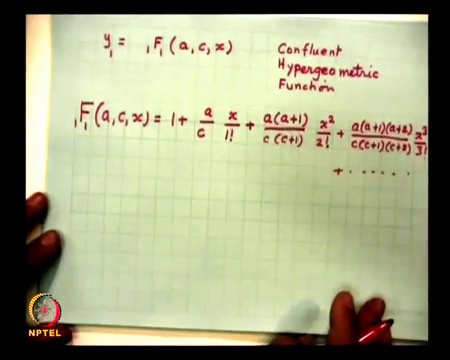 y₁ = ₁F₁ (a, c, x) Confluent
Hypergeometric
Function
₁F₁ (a, c, x) = 1 + a/c x/1! + a(a+1)/c(c+1) x²/2! + a(a+1)(a+2)/c(c+1)(c+2) x³/3!
+ ......
NPTEL